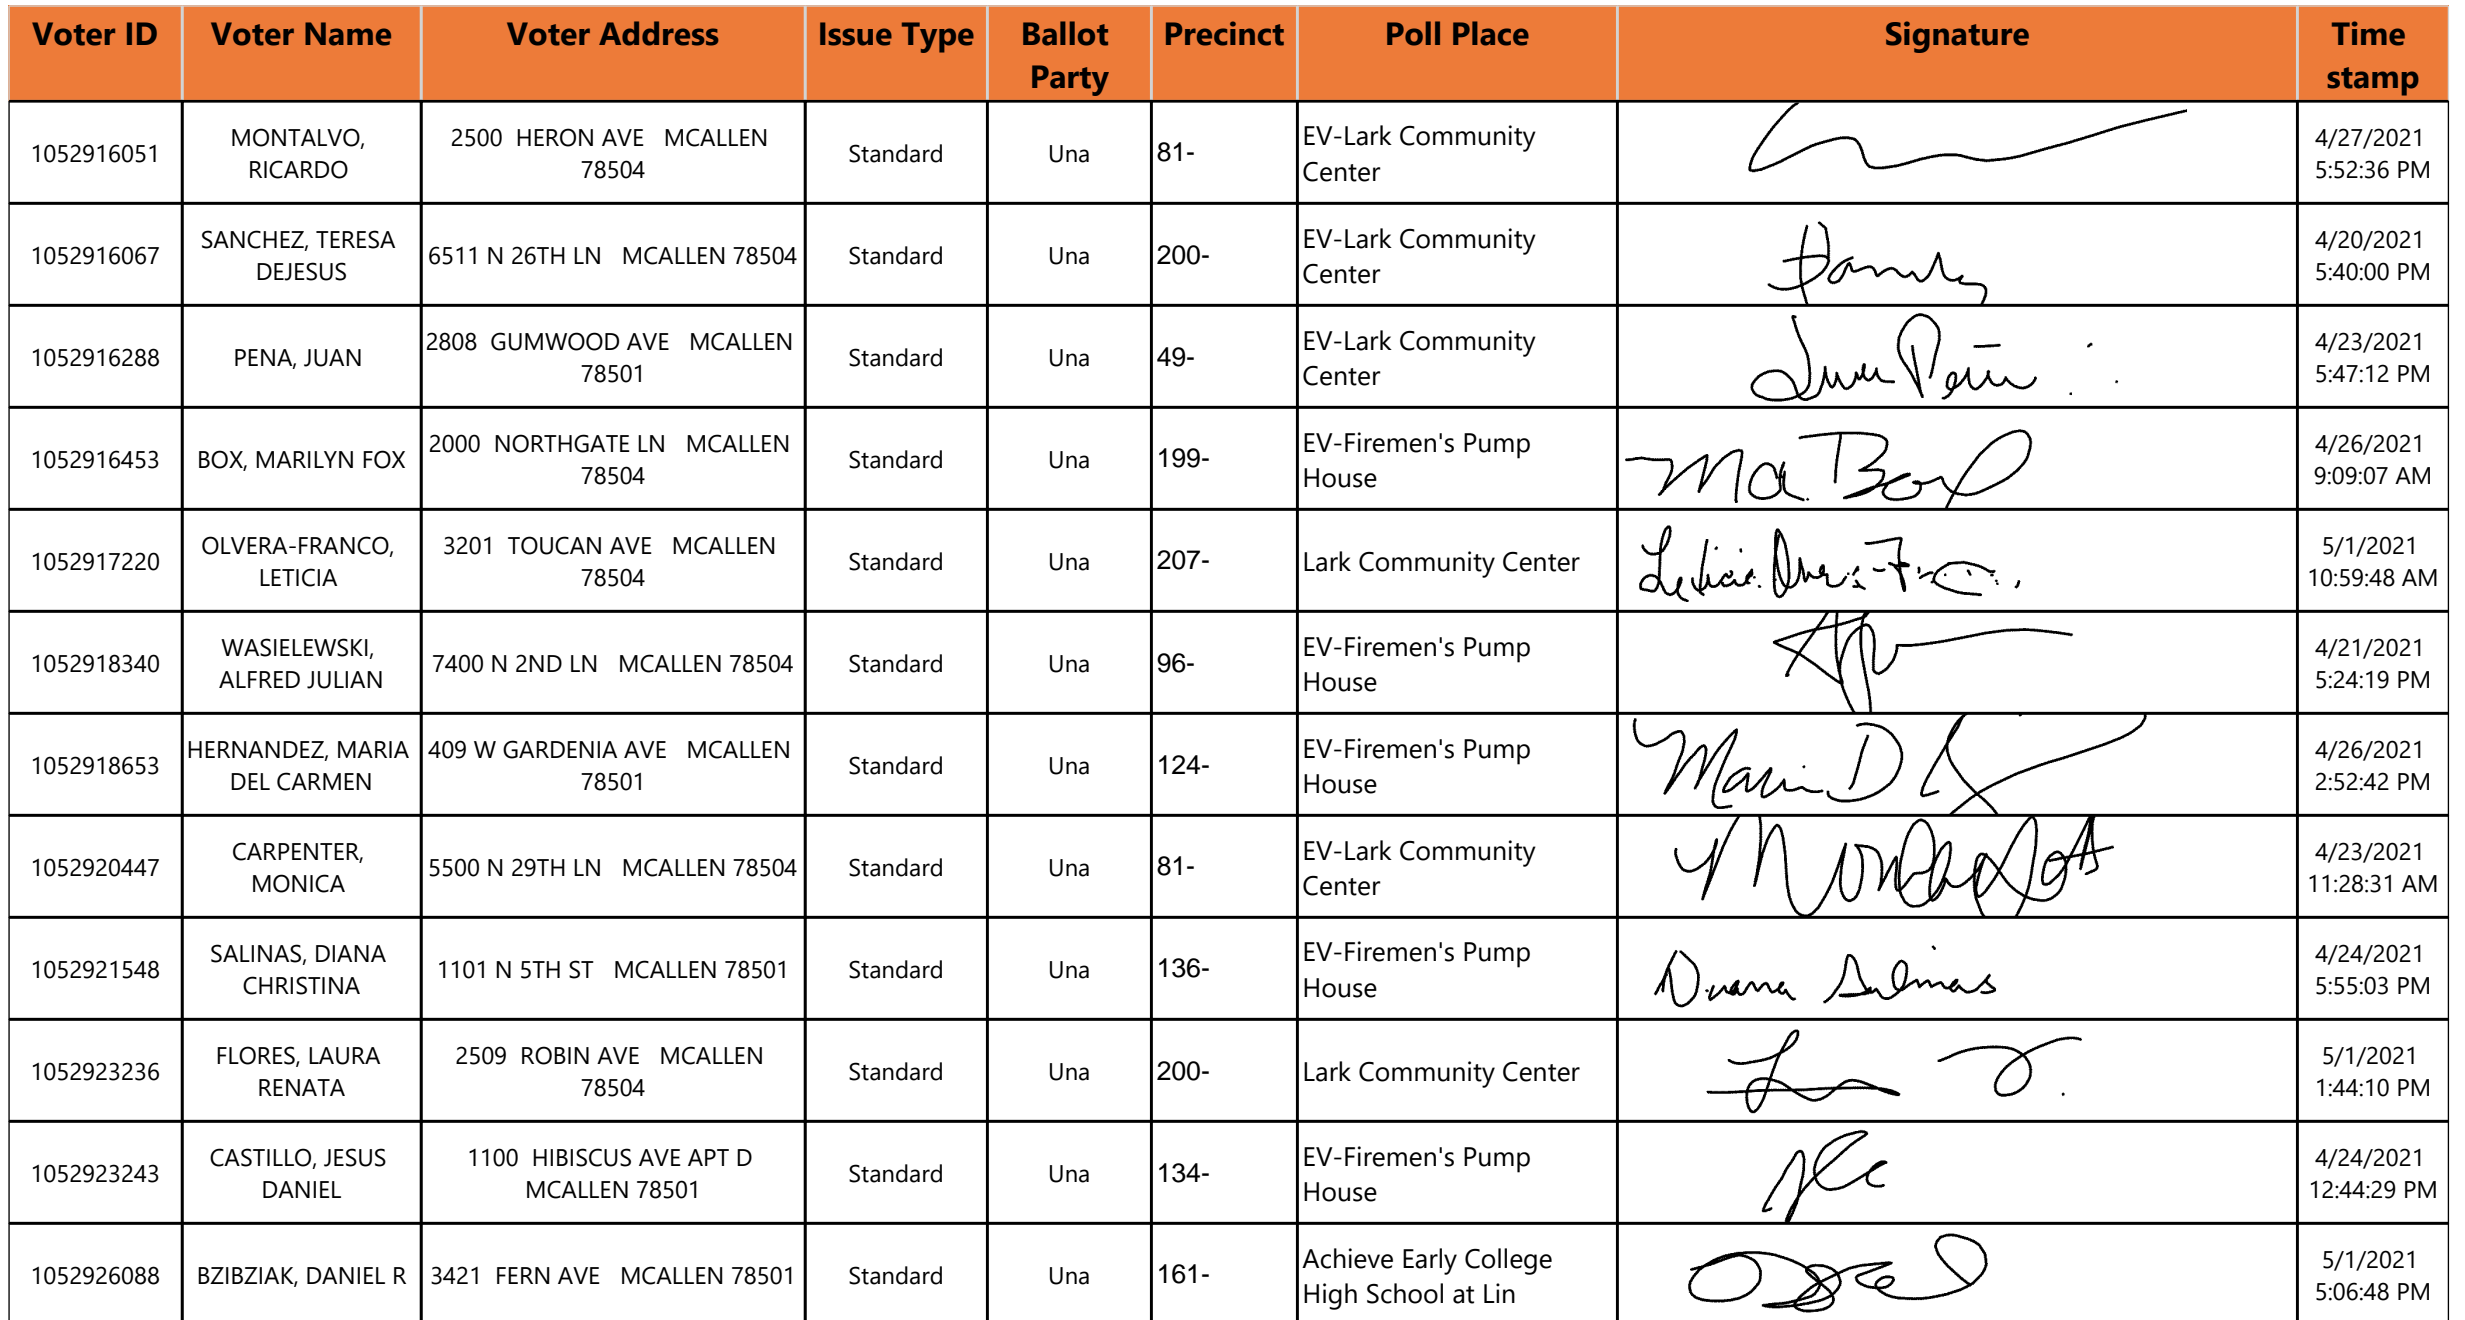 Voter ID Voter Name Voter Address Issue Type Ballot Party Precinct Poll Place Signature Time stamp
1052916051 MONTALVO, RICARDO 2500 HERON AVE MCALLEN 78504 Standard Una 81- EV-Lark Community Center 4/27/2021 5:52:36 PM
1052916067 SANCHEZ, TERESA DEJESUS 6511 N 26TH LN MCALLEN 78504 Standard Una 200- EV-Lark Community Center 4/20/2021 5:40:00 PM
1052916288 PENA, JUAN 2808 GUMWOOD AVE MCALLEN 78501 Standard Una 49- EV-Lark Community Center Juan Peña 4/23/2021 5:47:12 PM
1052916453 BOX, MARILYN FOX 2000 NORTHGATE LN MCALLEN 78504 Standard Una 199- EV-Firemen's Pump House 4/26/2021 9:09:07 AM
1052917220 OLVERA-FRANCO, LETICIA 3201 TOUCAN AVE MCALLEN 78504 Standard Una 207- Lark Community Center Leticia 5/1/2021 10:59:48 AM
1052918340 WASIELEWSKI, ALFRED JULIAN 7400 N 2ND LN MCALLEN 78504 Standard Una 96- EV-Firemen's Pump House 4/21/2021 5:24:19 PM
1052918653 HERNANDEZ, MARIA DEL CARMEN 409 W GARDENIA AVE MCALLEN 78501 Standard Una 124- EV-Firemen's Pump House Maria D 4/26/2021 2:52:42 PM
1052920447 CARPENTER, MONICA 5500 N 29TH LN MCALLEN 78504 Standard Una 81- EV-Lark Community Center 4/23/2021 11:28:31 AM
1052921548 SALINAS, DIANA CHRISTINA 1101 N 5TH ST MCALLEN 78501 Standard Una 136- EV-Firemen's Pump House Diana Salinas 4/24/2021 5:55:03 PM
1052923236 FLORES, LAURA RENATA 2509 ROBIN AVE MCALLEN 78504 Standard Una 200- Lark Community Center 5/1/2021 1:44:10 PM
1052923243 CASTILLO, JESUS DANIEL 1100 HIBISCUS AVE APT D MCALLEN 78501 Standard Una 134- EV-Firemen's Pump House 4/24/2021 12:44:29 PM
1052926088 BZIBZIAK, DANIEL R 3421 FERN AVE MCALLEN 78501 Standard Una 161- Achieve Early College High School at Lin 5/1/2021 5:06:48 PM